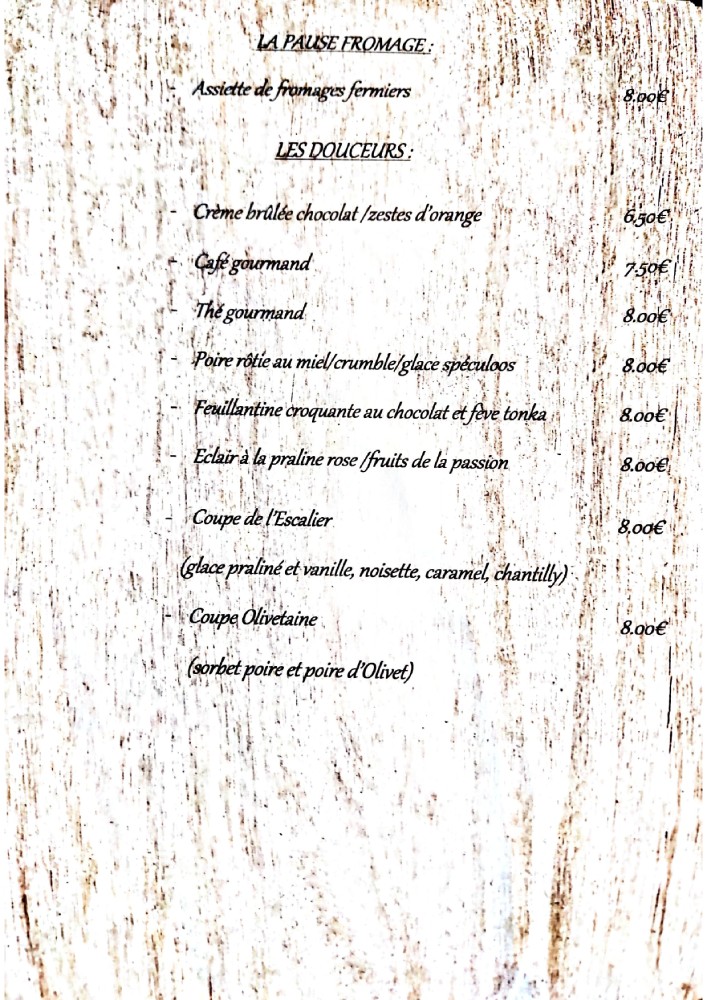 LA PAUSE FROMAGE :
- Assiette de fromages fermiers 8.00€
LES DOUCEURS :
- Crème brûlée chocolat /zestes d'orange 6.50€
- Café gourmand 7.50€
- Thé gourmand 8.00€
- Poire rôtie au miel/crumble/glace spéculoos 8.00€
- Feuillantine croquante au chocolat et fève tonka 8.00€
- Eclair à la praline rose /fruits de la passion 8.00€
- Coupe de l'Escalier 8.00€
(glace praliné et vanille, noisette, caramel, chantilly)
- Coupe Olivetaine 8.00€
(sorbet poire et poire d'Olivet)